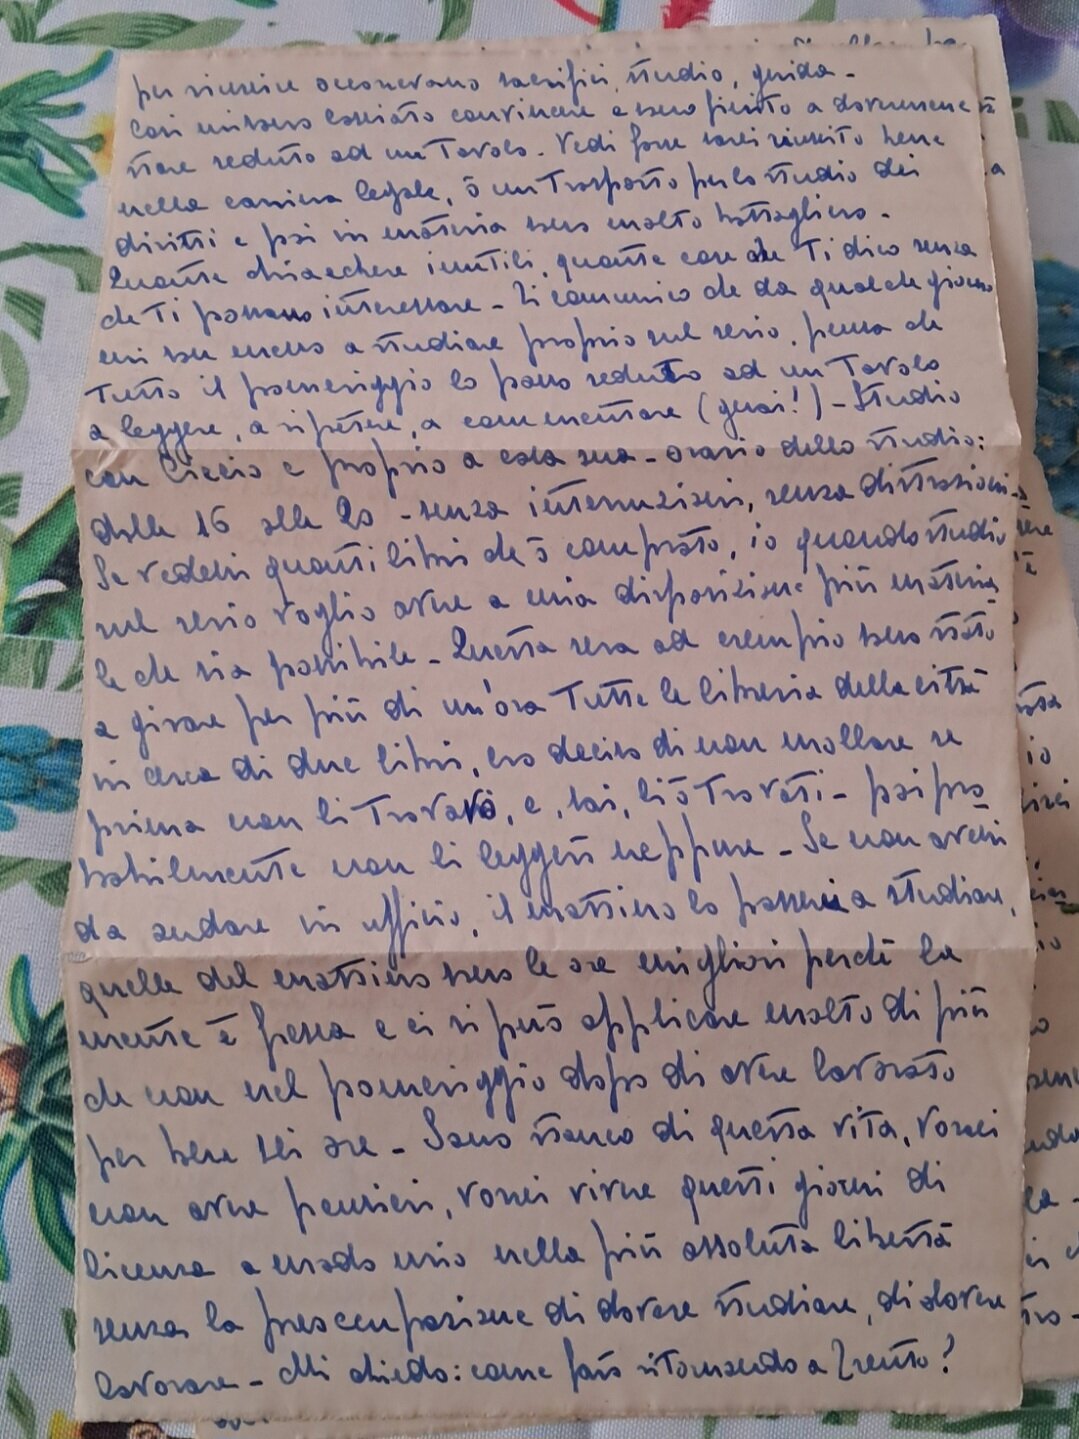 per riuscire occorrevano sacrifici, studio, guida -
Così mi sono lasciato convincere e sono finito a dovermene
stare seduto ad un Tavolo - Vedi forse sarei riuscito bene
nella carriera legale, ò un Trasporto per lo studio dei
diritti e poi in materia sono molto battagliero -
Quante chiacchere inutili, quante cose che Ti dico senza
che Ti possano interessare - Ti comunico che da qualche giorno
mi son messo a studiare proprio sul serio, pensa che
Tutto il pomeriggio lo passo seduto ad un Tavolo
a leggere, a ripetere, a commentare (guai!) - Studio
con Ciccio e proprio a casa sua - orario dello studio:
dalle 16 alle 20 - senza interruzioni, senza distrazioni -
Se vedessi quanti libri che ò comprato, io quando studio
sul serio voglio avere a mia disposizione più materia
le che sia possibile - Questa sera ad esempio sono stato
a girare per più di un'ora Tutte le librerie della città
in cerca di due libri, ero deciso di non mollare se
prima non li Trovavo, e, sai, li ò Trovati - poi pro
babilmente non li leggerò neppure - Se non avessi
da andare in ufficio, il mattino lo passerei a studiare,
quelle del mattino sono le ore migliori perché la
mente è fresca e ci si può applicare molto di più
che non nel pomeriggio dopo di avere lavorato
per bene sei ore - Sono stanco di questa vita, vorrei
non avere pensieri, vorrei vivere questi giorni di
licenza a modo mio nella più assoluta libertà
senza la preoccupazione di dovere studiare, di dovere
lavorare - Mi chiedo: come farò ritornando a Trento?